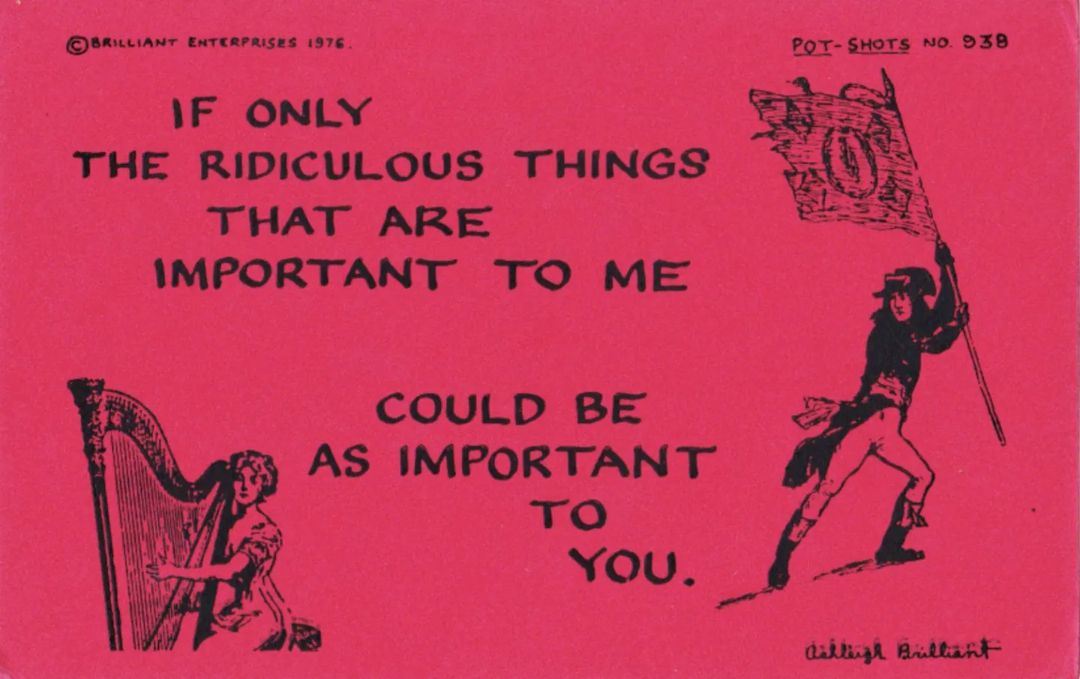 ©BRILLIANT ENTERPRISES 1976.
POT-SHOTS NO. 938
IF ONLY
THE RIDICULOUS THINGS
THAT ARE
IMPORTANT TO ME
COULD BE
AS IMPORTANT
TO
YOU.
Ashleigh Brilliant